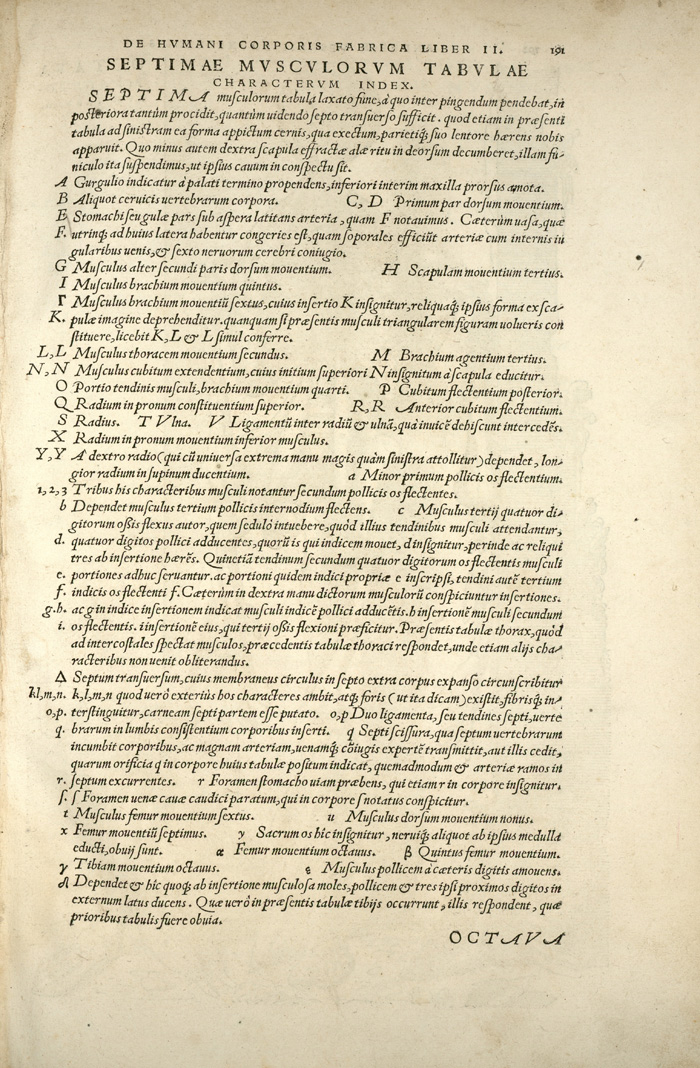 DE HVMANI CORPORIS FABRICA LIBER II. 191
SEPTIMAE MVSCVLORVM TABVLAE
CHARACTERVM INDEX.
SEPTIMA musculorum tabula laxato fune, à quo inter pingendum pendebat, in
posteriora tantùm procidit, quantùm uidendo septo transuerso sufficit. quod etiam in præsenti
tabula ad sinistram ea forma appictum cernis, qua exectum, parietiq́; suo lentore hærens nobis
apparuit. Quo minus autem dextra scapula effractæ alæ ritu in deorsum decumberet, illam fu-
niculo ita suspendimus, ut ipsius cauum in conspectu sit.
A Gurgulio indicatur à palati termino propendens, inferiori interim maxilla prorsus amota.
B Aliquot ceruicis uertebrarum corpora. C, D Primum par dorsum mouentium.
E, Stomachi seu gulæ pars sub aspera latitans arteria, quam F notauimus. Cæterùm uasa, quæ
F. utrinq; ad huius latera habentur congeries est, quam soporales efficiũt arteriæ cum internis iu
gularibus uenis, & sexto neruorum cerebri coniugio.
G Musculus alter secundi paris dorsum mouentium. H Scapulam mouentium tertius.
I Musculus brachium mouentium quintus.
Γ Musculus brachium mouentiũ sextus, cuius insertio K insignitur, reliquaq́; ipsius forma ex sca-
K. pulæ imagine deprehenditur. quanquam si præsentis musculi triangularem figuram uolueris con
stituere, licebit K, L & L simul conferre.
L, L Musculus thoracem mouentium secundus. M Brachium agentium tertius.
N, N Musculus cubitum extendentium, cuius initium superiori N insignitum à scapula educitur.
O Portio tendinis musculi, brachium mouentium quarti. P Cubitum flectentium posterior.
Q Radium in pronum constituentium superior. R, R Anterior cubitum flectentium.
S Radius. T Vlna. V Ligamentũ inter radiũ & ulnã, quà inuicẽ dehiscunt intercedẽs.
X Radium in pronum mouentium inferior musculus.
Y, Y A dextro radio (qui cũ uniuersa extrema manu magis quàm sinistra attollitur) dependet, lon-
gior radium in supinum ducentium. a Minor primum pollicis os flectentium.
1, 2, 3 Tribus his characteribus musculi notantur secundum pollicis os flectentes.
b Dependet musculus tertium pollicis internodium flectens. c Musculus tertij quatuor di-
gitorum ossis flexus autor, quem sedulò intuebere, quòd illius tendinibus musculi attendantur,
d. quatuor digitos pollici adducentes, quorũ is qui indicem mouet, d insignitur, perinde ac reliqui
tres ab insertione hærẽs. Quinetiã tendinum secundum quatuor digitorum os flectentis musculi
e. portiones adhuc seruantur. ac portioni quidem indici propriæ e inscripsi, tendini autẽ tertium
f. indicis os flectenti f. Cæterùm in dextra manu dictorum musculorũ conspiciuntur insertiones.
g. h. ac g in indice insertionem indicat musculi indicẽ pollici adducẽtis. h insertionẽ musculi secundum
i. os flectentis. i insertionẽ eius, qui tertij ossis flexioni præficitur. Præsentis tabulæ thorax, quòd
ad intercostales spectat musculos, præcedentis tabulæ thoraci respondet, unde etiam alijs cha-
racteribus non uenit obliterandus.
Δ Septum transuersum, cuius membraneus circulus in septo extra corpus expanso circunscribitur
k l, m, n. k, l, m, n quod uerò exterius hos characteres ambit, atq́; foris (ut ita dicam) existit, fibrisq́; in-
o, p. terstinguitur, carneam septi partem esse putato. o, p Duo ligamenta, seu tendines septi, uerte
q. brarum in lumbis consistentium corporibus inserti. q Septi scissura, qua septum uertebrarum
incumbit corporibus, ac magnam arteriam, uenamq́; cõiugis expertẽ transmittit, aut illis cedit,
quarum orificia q in corpore huius tabulæ positum indicat, quemadmodum & arteriæ ramos in
r. septum excurrentes. r Foramen stomacho uiam præbens, qui etiam r in corpore insignitur.
ſ. ſ Foramen uenæ cauæ caudici paratum, qui in corpore ſ notatus conspicitur.
t Musculus femur mouentium sextus. u Musculus dorsum mouentium nonus.
x Femur mouentiũ septimus. y Sacrum os hic insignitur, neruiq́; aliquot ab ipsius medulla
educti, obuij sunt. α Femur mouentium octauus. β Quintus femur mouentium.
γ Tibiam mouentium octauus. ε Musculus pollicem à cæteris digitis amouens.
δ Dependet & hic quoq́; ab insertione musculosa moles, pollicem & tres ipsi proximos digitos in
externum latus ducens. Quæ uerò in præsentis tabulæ tibijs occurrunt, illis respondent, quæ
prioribus tabulis fuere obuia.
OCTAVA